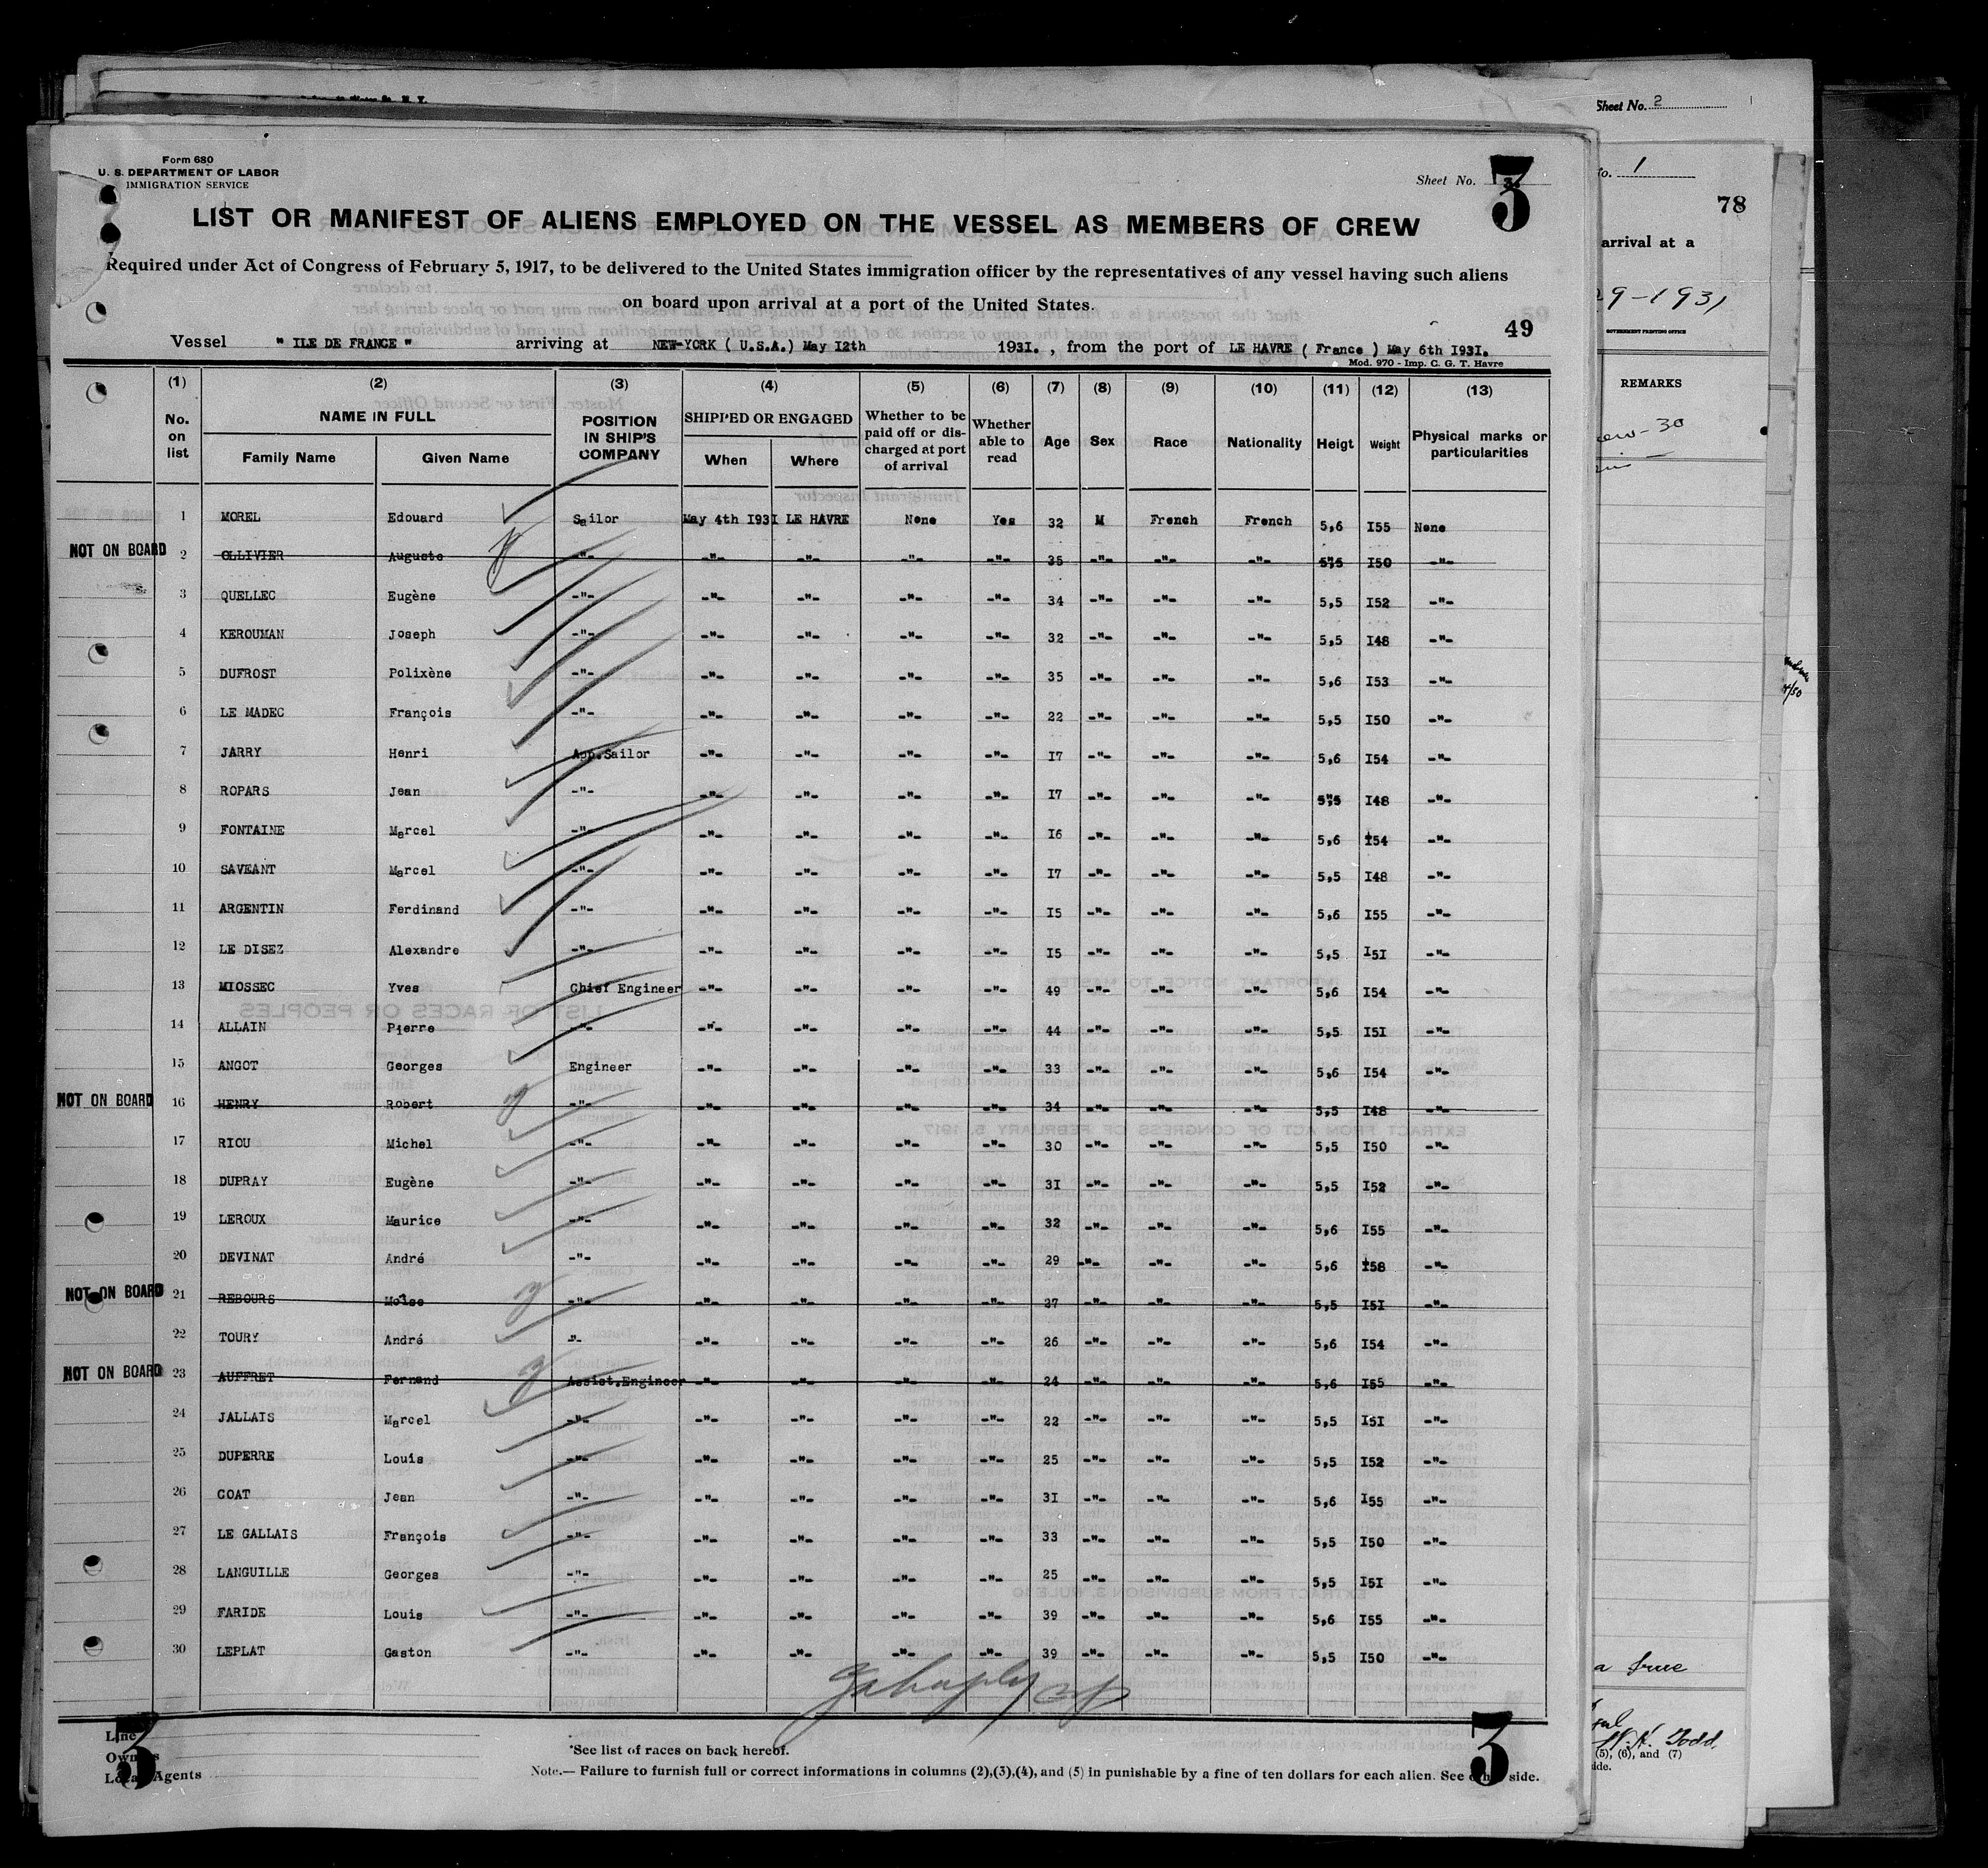 Sheet No. 2
No. 1
78
arrival at a
29-1931
GOVERNMENT PRINTING OFFICE
REMARKS
Form 680
U. S. DEPARTMENT OF LABOR
IMMIGRATION SERVICE
Sheet No. 3
3
LIST OR MANIFEST OF ALIENS EMPLOYED ON THE VESSEL AS MEMBERS OF CREW
Required under Act of Congress of February 5, 1917, to be delivered to the United States immigration officer by the representatives of any vessel having such aliens
on board upon arrival at a port of the United States.
49
Vessel " ILE DE FRANCE " arriving at NEW-YORK ( U.S.A.) May I2th 193I. , from the port of LE HAVRE ( France ) May 6th I93I.
Mod. 970 - Imp. C. G. T. Havre
(1) (2) (3) (4) (5) (6) (7) (8) (9) (10) (11) (12) (13)
No. on list NAME IN FULL POSITION IN SHIP'S COMPANY SHIPPED OR ENGAGED Whether to be paid off or discharged at port of arrival Whether able to read Age Sex Race Nationality Heigt Weight Physical marks or particularities
Family Name Given Name When Where
1 MOREL Edouard Sailor May 4th I93I LE HAVRE None Yes 32 M French French 5,6 I55 None
NOT ON BOARD 2 OLLIVIER Auguste -"- -"- -"- -"- -"- 35 -"- -"- -"- 5,5 I50 -"-
3 QUELLEC Eugène -"- -"- -"- -"- -"- 34 -"- -"- -"- 5,5 I52 -"-
4 KEROUMAN Joseph -"- -"- -"- -"- -"- 32 -"- -"- -"- 5,5 I48 -"-
5 DUFROST Polixène -"- -"- -"- -"- -"- 35 -"- -"- -"- 5,6 I53 -"-
6 LE MADEC François -"- -"- -"- -"- -"- 22 -"- -"- -"- 5,5 I50 -"-
7 JARRY Henri App.Sailor -"- -"- -"- -"- I7 -"- -"- -"- 5,6 I54 -"-
8 ROPARS Jean -"- -"- -"- -"- -"- I7 -"- -"- -"- 5,5 I48 -"-
9 FONTAINE Marcel -"- -"- -"- -"- -"- I6 -"- -"- -"- 5,6 I54 -"-
10 SAVEANT Marcel -"- -"- -"- -"- -"- I7 -"- -"- -"- 5,5 I48 -"-
11 ARGENTIN Ferdinand -"- -"- -"- -"- -"- I5 -"- -"- -"- 5,6 I55 -"-
12 LE DISEZ Alexandre -"- -"- -"- -"- -"- I5 -"- -"- -"- 5,5 I5I -"-
13 MIOSSEC Yves Chief Engineer -"- -"- -"- -"- 49 -"- -"- -"- 5,6 I54 -"-
14 ALLAIN Pierre -"- -"- -"- -"- -"- 44 -"- -"- -"- 5,5 I5I -"-
15 ANGOT Georges Engineer -"- -"- -"- -"- 33 -"- -"- -"- 5,6 I54 -"-
NOT ON BOARD 16 HENRY Robert -"- -"- -"- -"- -"- 34 -"- -"- -"- 5,5 I48 -"-
17 RIOU Michel -"- -"- -"- -"- -"- 30 -"- -"- -"- 5,5 I50 -"-
18 DUPRAY Eugène -"- -"- -"- -"- -"- 3I -"- -"- -"- 5,5 I52 -"-
19 LEROUX Maurice -"- -"- -"- -"- -"- 32 -"- -"- -"- 5,6 I55 -"-
20 DEVINAT André -"- -"- -"- -"- -"- 29 -"- -"- -"- 5,6 I58 -"-
NOT ON BOARD 21 REBOURS Moîse -"- -"- -"- -"- -"- 27 -"- -"- -"- 5,5 I5I -"-
22 TOURY André "- -"- -"- -"- -"- 26 -"- -"- -"- 5,6 I54 -"-
NOT ON BOARD 23 AUFFRET Fernand Assist.Engineer -"- -"- -"- -"- 24 -"- -"- -"- 5,6 I55 -"-
24 JALLAIS Marcel -"- -"- -"- -"- -"- 22 -"- -"- -"- 5,5 I5I -"-
25 DUPERRE Louis -"- -"- -"- -"- -"- 25 -"- -"- -"- 5,5 I52 -"-
26 COAT Jean -"- -"- -"- -"- -"- 3I -"- -"- -"- 5,6 I55 -"-
27 LE GALLAIS François -"- -"- -"- -"- -"- 33 -"- -"- -"- 5,5 I50 -"-
28 LANGUILLE Georges -"- -"- -"- -"- -"- 25 -"- -"- -"- 5,5 I5I -"-
29 FARIDE Louis -"- -"- -"- -"- -"- 39 -"- -"- -"- 5,6 I55 -"-
30 LEPLAT Gaston -"- -"- -"- -"- -"- 39 -"- -"- -"- 5,5 I50 -"-
a true
W. H. Todd
(5), (6), and (7)
side.
Line
Owners
Local Agents
3
3
*See list of races on back hereof.
Note.— Failure to furnish full or correct informations in columns (2),(3),(4), and (5) in punishable by a fine of ten dollars for each alien. See other side.